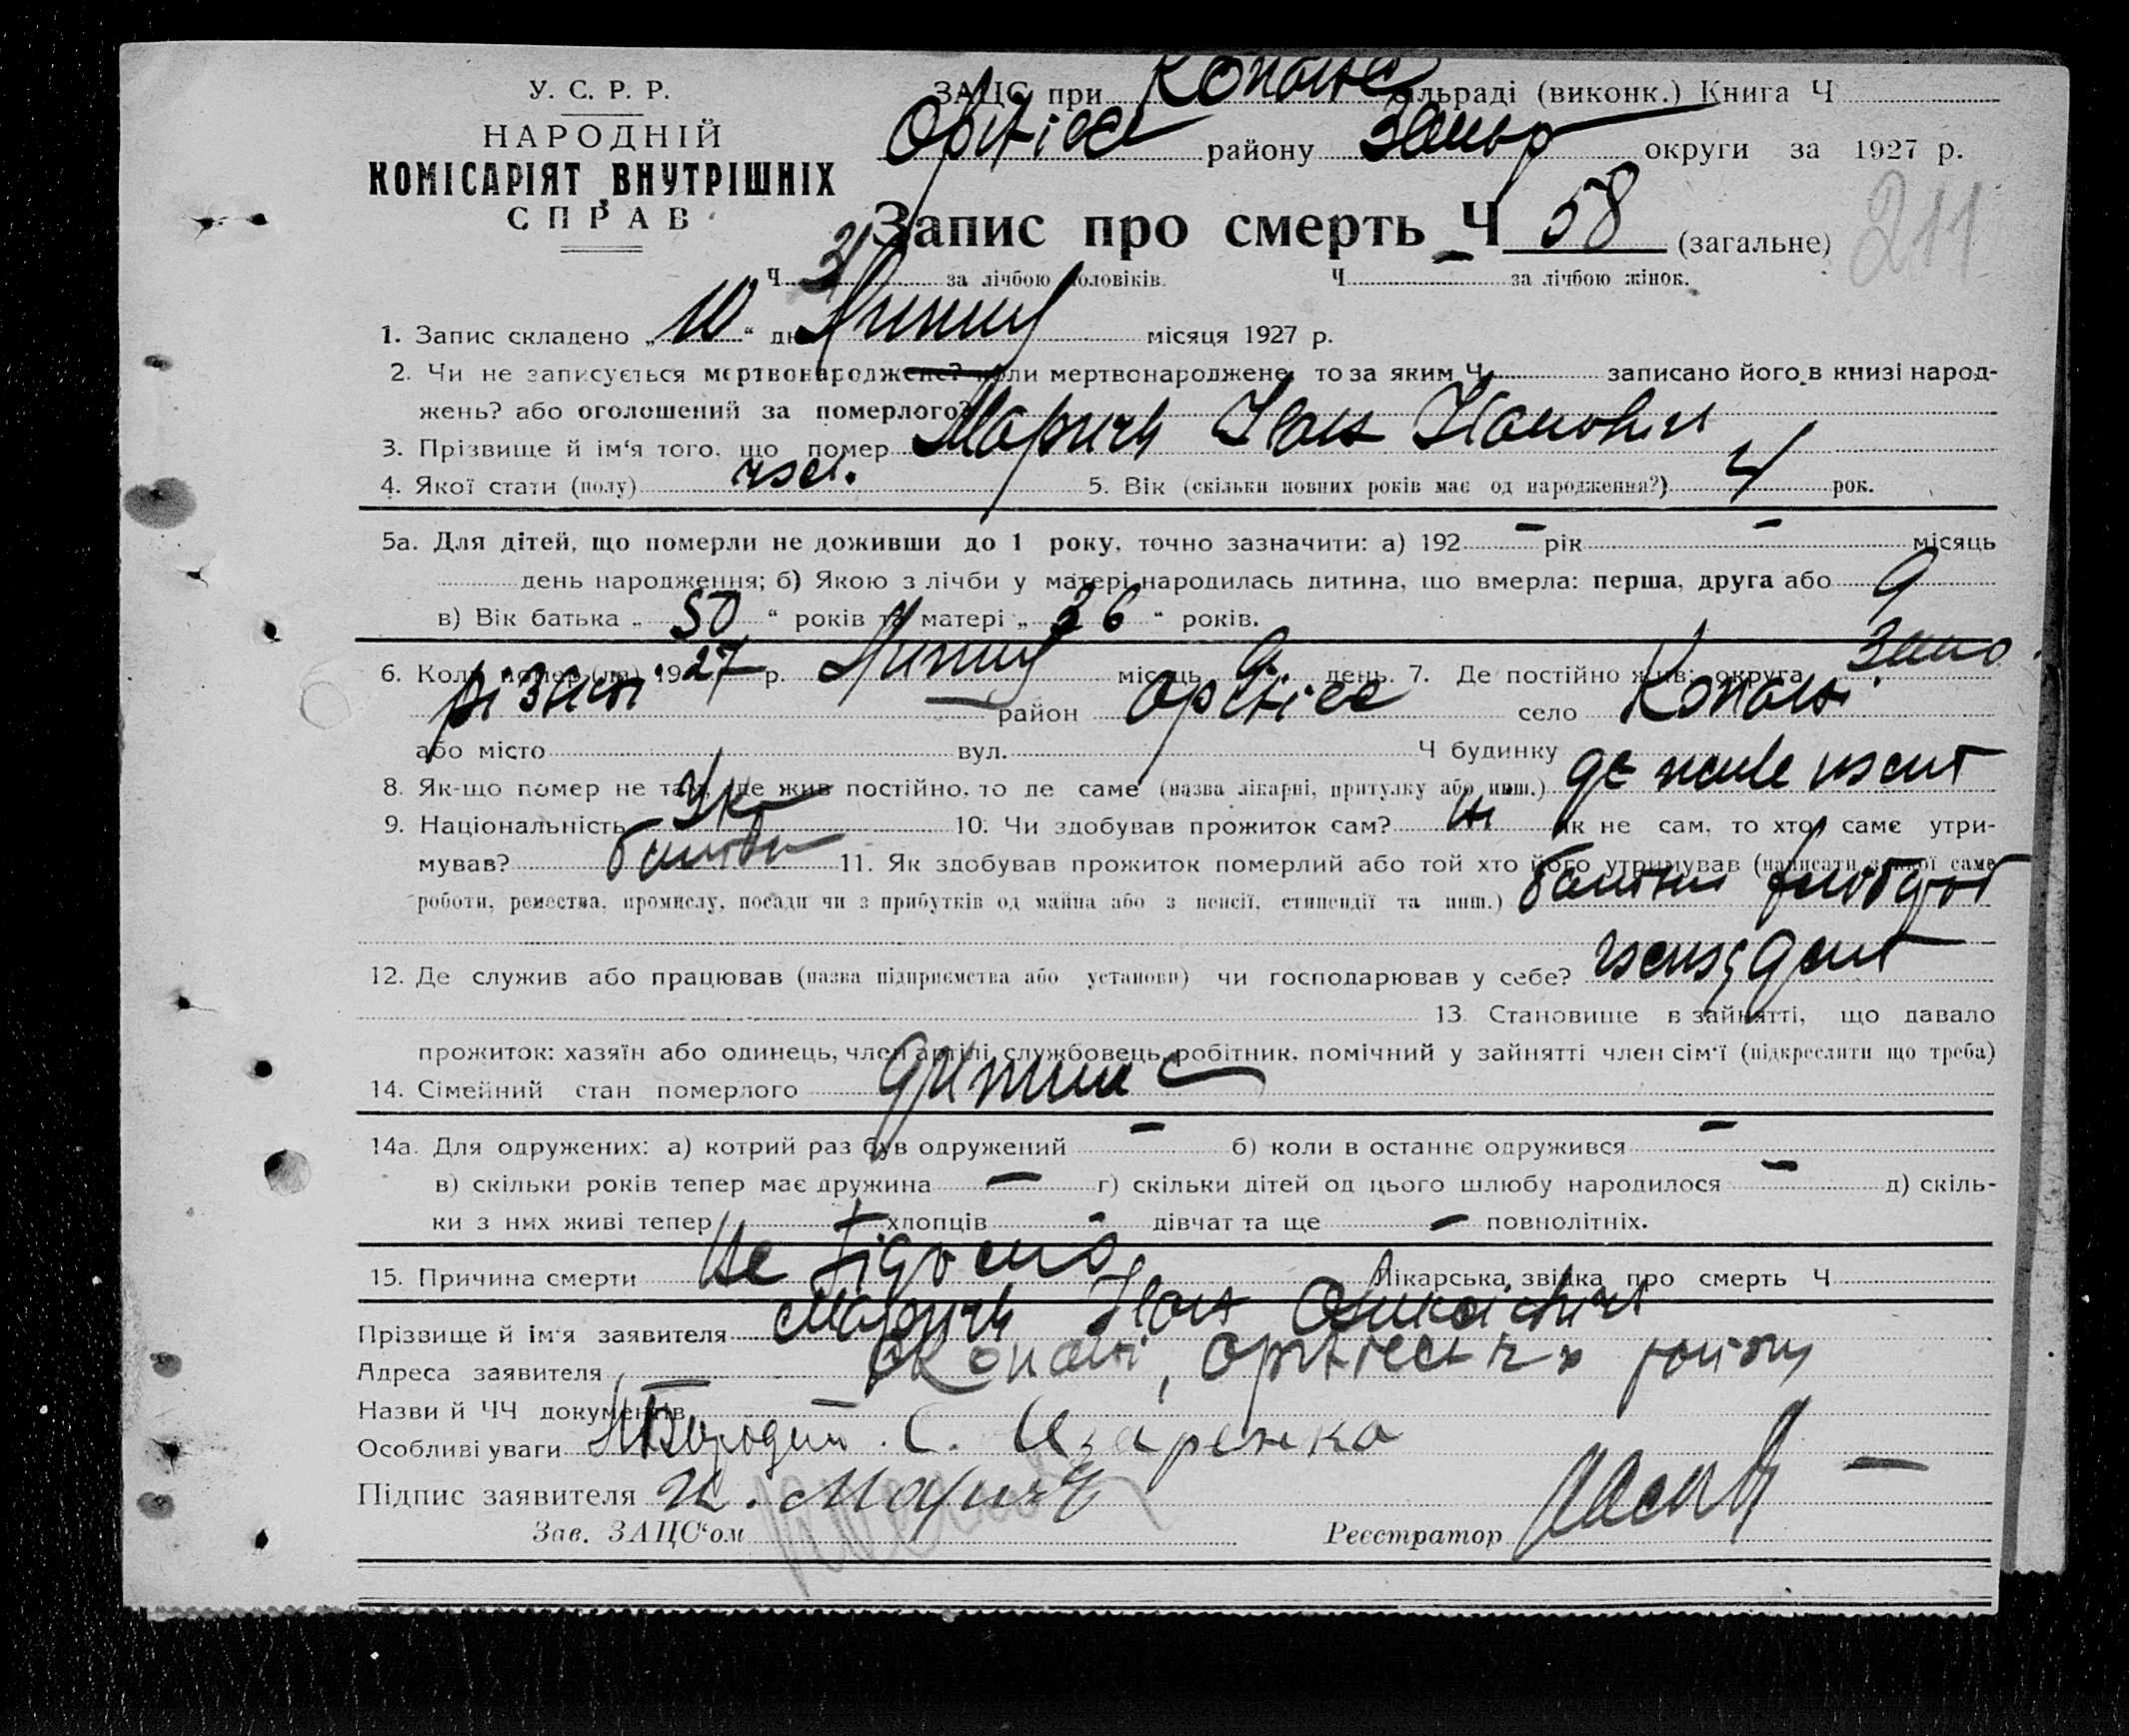 У. С. Р. Р.
НАРОДНІЙ
КОМІСАРІЯТ ВНУТРІШНІХ
СПРАВ
ЗАЦС при Копані сільраді (виконк.) Книга Ч
Оріхівс району Запор округи за 1927 р.
Запис про смерть Ч 58 (загальне)
211
Ч 31 за лічбою чоловіків. Ч — за лічбою жінок.
1. Запис складено „10“ дня Липня місяця 1927 р.
2. Чи не записується мертвонароджене? коли мертвонароджене, то за яким Ч записано його в книзі народ-
жень? або оголошений за померлого?
3. Прізвище й ім‘я того, що помер Марич Іван Іванович
4. Якої стати (полу) чол. 5. Вік (скільки повних років має од народження?) 4 рок.
5а. Для дітей, що померли не доживши до 1 року, точно зазначити: а) 192 — рік — місяць
день народження; б) Якою з лічби у матері народилась дитина, що вмерла: перша, друга або 9
в) Вік батька „50“ років та матері „36“ років.
6. Коли помер (ла) 1927 р. Липня місяць 9 день. 7. Де постійно жив: округа Запо
різька — район Оріхівс село Копані
або місто вул. Ч будинку
8. Як-що помер не там, де жив постійно, то де саме (назва лікарні, притулку або инш.) де мав жит
9. Національність Укр 10. Чи здобував прожиток сам? ні Як не сам, то хто саме утри-
мував? батьки 11. Як здобував прожиток померлий або той хто його утримував (написати з якої саме
роботи, ремества, промислу, посади чи з прибутків од майна або з пенсії, стипендії та инш.) батьки хлібороб
12. Де служив або працював (назва підприємства або установи) чи господарював у себе?
13. Становище в зайнятті, що давало
прожиток: хазяїн або одинець, член артілі, службовець, робітник, помічний у зайнятті член сім‘ї (підкреслити що треба)
14. Сімейний стан померлого дитина
14а. Для одружених: а) котрий раз був одружений — б) коли в останнє одружився —
в) скільки років тепер має дружина — г) скільки дітей од цього шлюбу народилося — д) скіль-
ки з них живі тепер — хлопців - дівчат та ще — повнолітніх.
15. Причина смерти Не відомо Лікарська звідка про смерть Ч
Прізвище й ім‘я заявителя Марич Іван
Адреса заявителя с Копані, Оріхівськ району
Назви й ЧЧ документів —
Особливі уваги
Підпис заявителя И. Марич
Зав. ЗАЦС‘ом Реєстратор